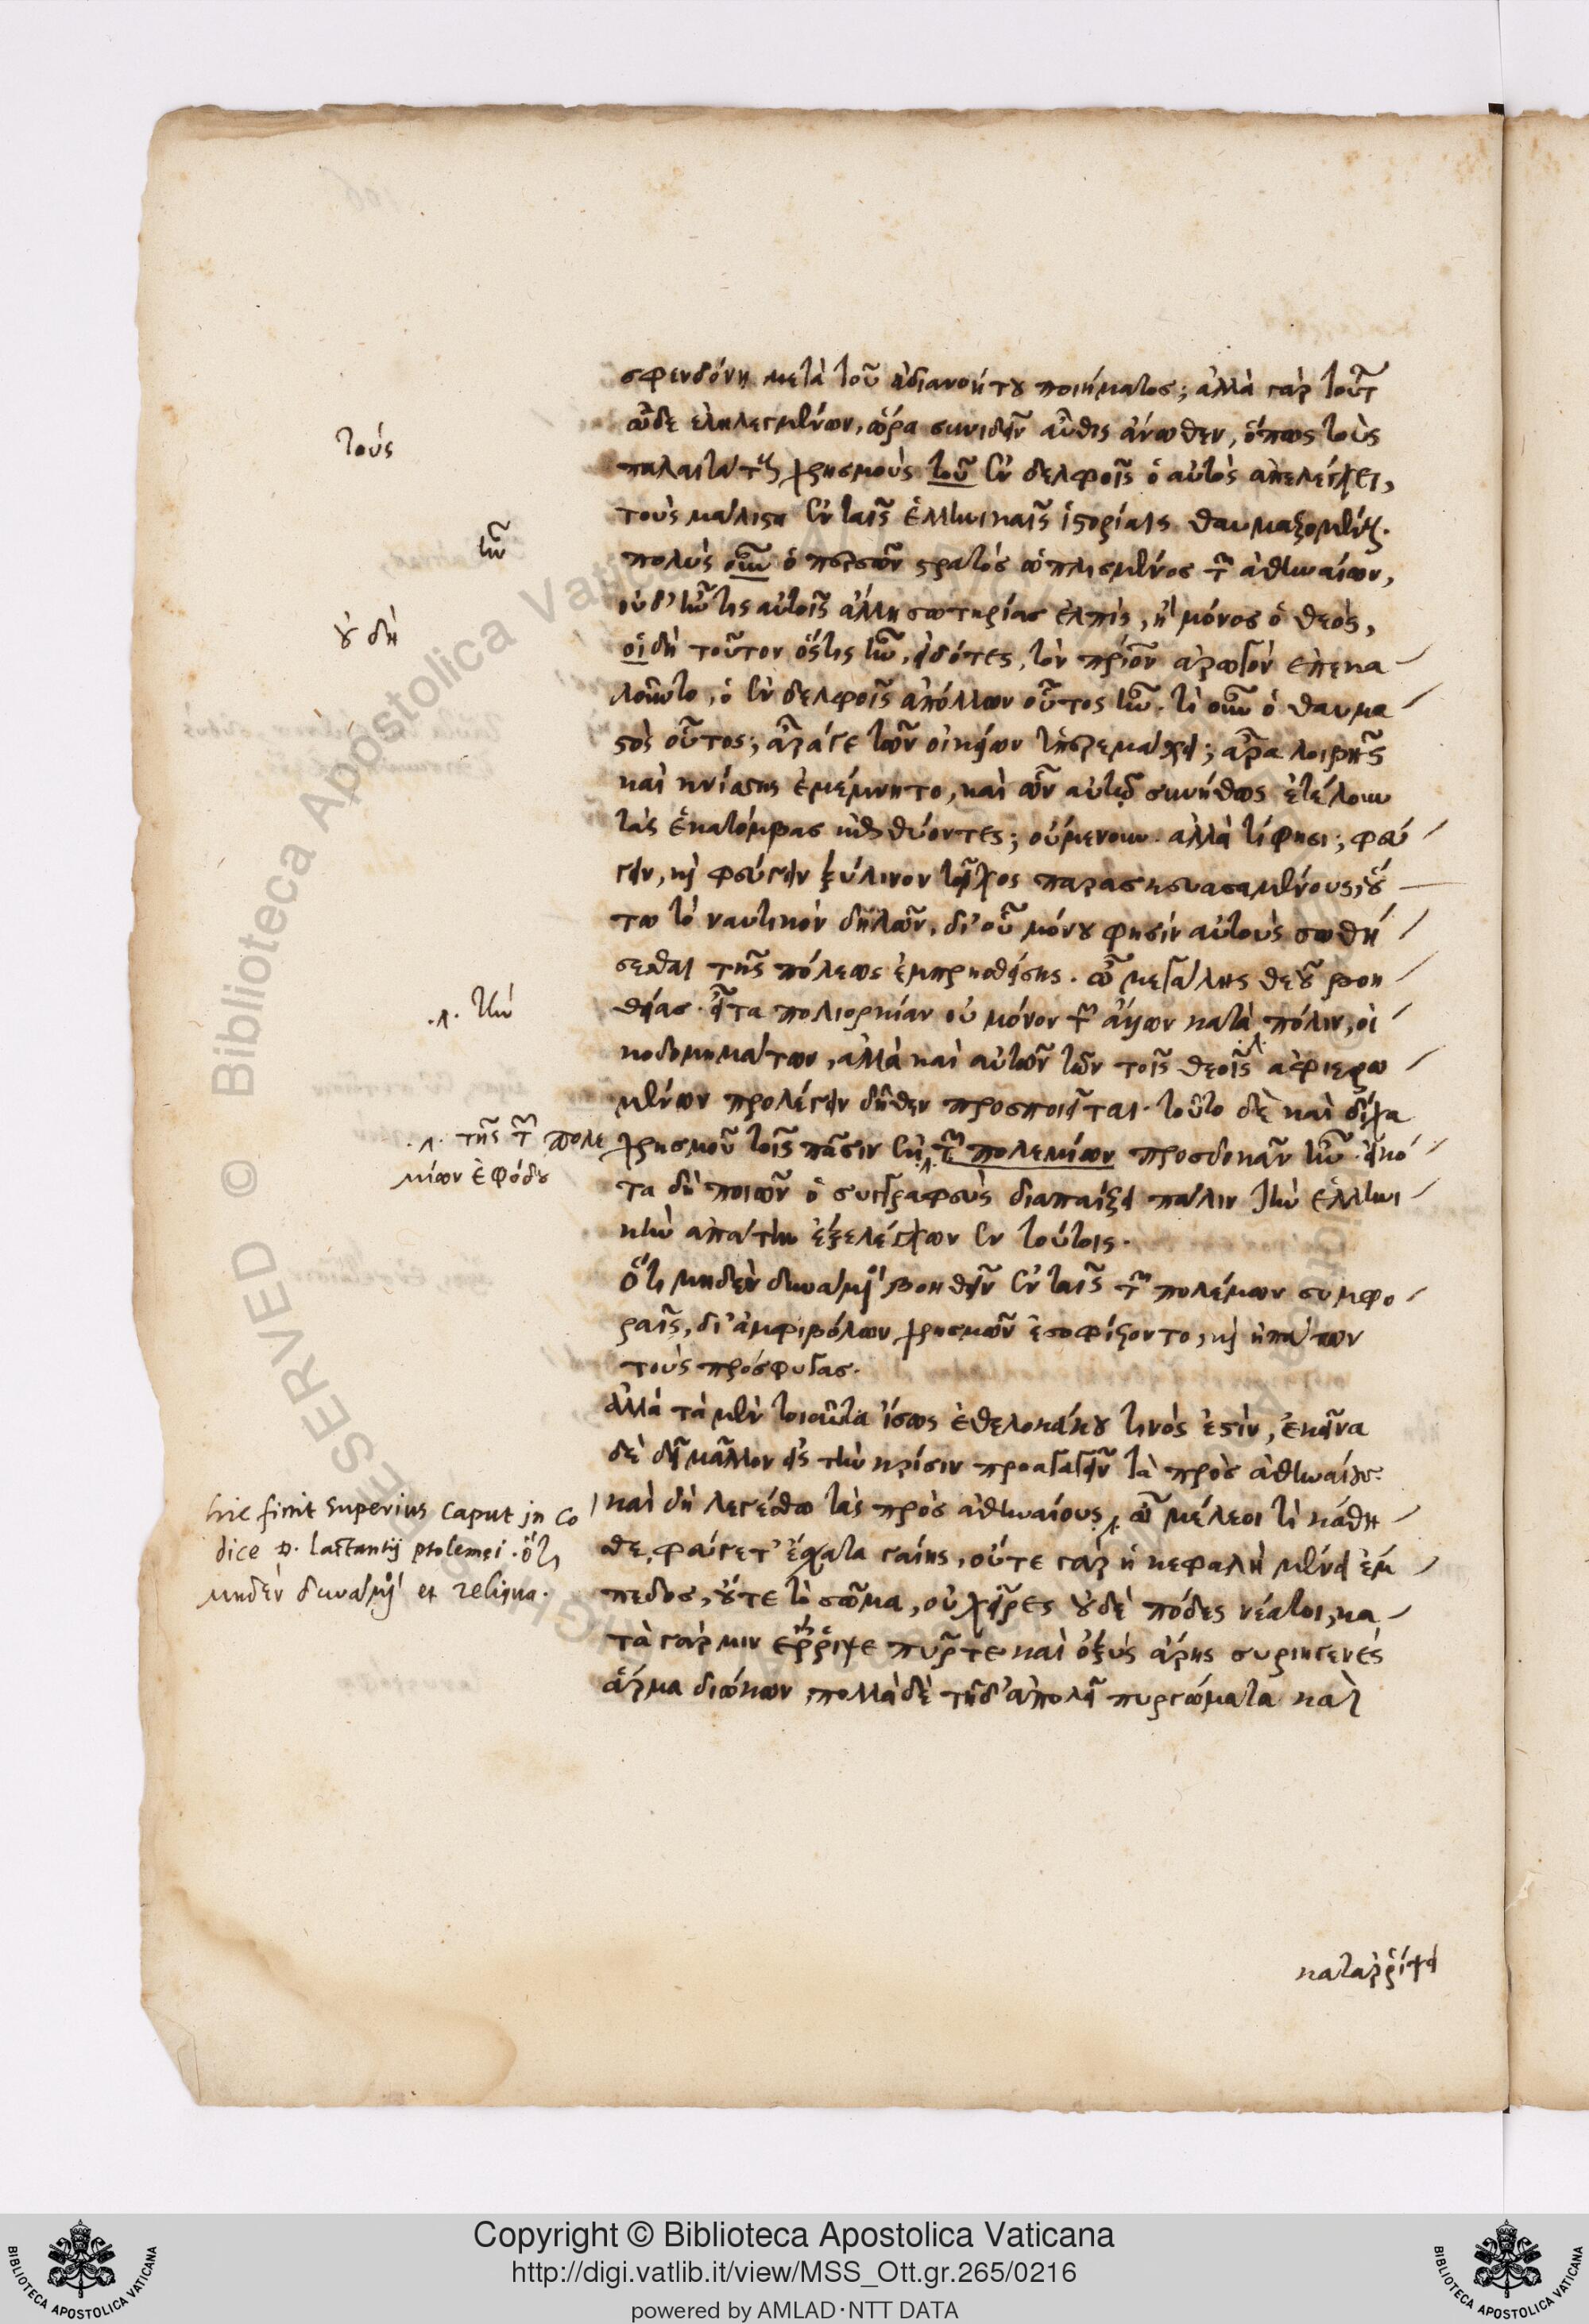 σφενδόνη μετὰ τοῦ ἀδιανοήτου ποιήματος; ἀλλὰ γὰρ τούτ
ὧδε ἐληλεγμένων, ὥρα συνιδεῖν αὖθις ἄνωθεν, ὅπως τοὺς
παλαιτάτους χρησμοὺς τοῦ ἐν δελφοῖς ὁ αὐτὸς ἀπελέγχει,
τοὺς μάλιστα ἐν ταῖς ἑλληνικαῖς ἱστορίαις θαυμαζομένους.
πολὺς οὖν ὁ περσῶν στρατὸς ὡπλισμένος τῶν ἀθηναίων,
οὐδ' ἦν τις αὐτοῖς ἄλλη σωτηρίας ἐλπὶς, ἢ μόνος ὁ θεὸς,
οἱ δὴ τοῦτον ὅστις ἦν, εἰδότες, τὸν πρῖον ἀρωγὸν ἐπεκα
λοῦντο, ὁ ἐν δελφοῖς ἀπόλλων οὗτος ἦν. τί οὖν ὁ θαυμα
στὸς οὗτος; ἆρά γε τῶν οἰκείων
καὶ κνίσσης ἐμέμνητο, καὶ ὧν αὐτῷ συνήθως ἐτέλουν
τὰς ἑκατόμβας θύοντες; οὐμενουν. ἀλλὰ τί φησι; φεύ
γειν, καὶ φεύγειν ξύλινον τεῖχος παρασκευασαμένους, οὕ
τω τὸ ναυτικὸν δηλῶν, δι' οὗ μόνου φησὶν αὐτοὺς σωθή
σεσθαι τῆς πόλεως ἐμπρησθείσης. ὦ μεγάλης θεοῦ βοη
θείας. εἶτα πολιορκίαν οὐ μόνον τῶν ἄλλων κατὰ πόλιν, οἰ
κοδομημάτων, ἀλλὰ καὶ αὐτῶν τῶν τοῖς θεοῖς ἀφιερω
μένων προλέγειν δῆθεν προσποιεῖται. τοῦτο δὲ καὶ δίχα
χρησμοῦ τοῖς πᾶσιν ἐκ τῶν πολεμίων προσδοκᾶν ἦν. εἰκό
τα δὴ ποιῶν ὁ συγγραφεὺς διαπαίξει πάλιν τὴν ἑλληνι
κὴν ἀπάτην ἐξελέγχων ἐν τούτοις.
Ὅτι μηδὲν δυνάμενοι βοηθεῖν ἐν ταῖς τῶν πολέμων συμφο
ραῖς, δι' ἀμφιβόλων χρησμῶν ἐσοφίζοντο, καὶ ἠπάτων
τοὺς πρόσφυγας.
ἀλλὰ τὰ μὲν τοιαῦτα ἴσως ἐθελοκάκου τινὸς ἐστὶν, ἐκεῖνα
δὲ δεῖ μᾶλλον εἰς τὴν κρίσιν προαγαγεῖν τὰ πρὸς ἀθηναίους.
καὶ δὴ λεγέσθω τὰς πρὸς ἀθηναίους, ὦ μέλεοι τί κάθη
σθε, φεύγετ' ἔσχατα γαίης, οὔτε γὰρ ἡ κεφαλὴ μένει ἔμ
πεδος, οὔτε τὸ σῶμα, οὐ χεῖρες οὐδὲ πόδες νέατοι, κα
τὰ γάρ μιν ἐρρῖψε πῦρ τε καὶ ὀξὺς ἄρης συριηγενὲς
ἅρμα διώκων, πολλὰ δὲ τῇδ' ἀπολεῖ πυργώματα καὶ
καταρρίψει
τούς
ἦν
οὐ δὴ
.λ. τὴν
.λ. τῆς τῶν πολε
μίων ἐφόδου
hic finit superius caput in co
dice D. lactantij ptolemei. ὅτι
μηδὲν δυνάμενοι et reliqua.
© Biblioteca Apostolica Vaticana
Copyright © Biblioteca Apostolica Vaticana
http://digi.vatlib.it/view/MSS_Ott.gr.265/0216
powered by AMLAD·NTT DATA
BIBLIOTECA APOSTOLICA VATICANA
BIBLIOTECA APOSTOLICA VATICANA